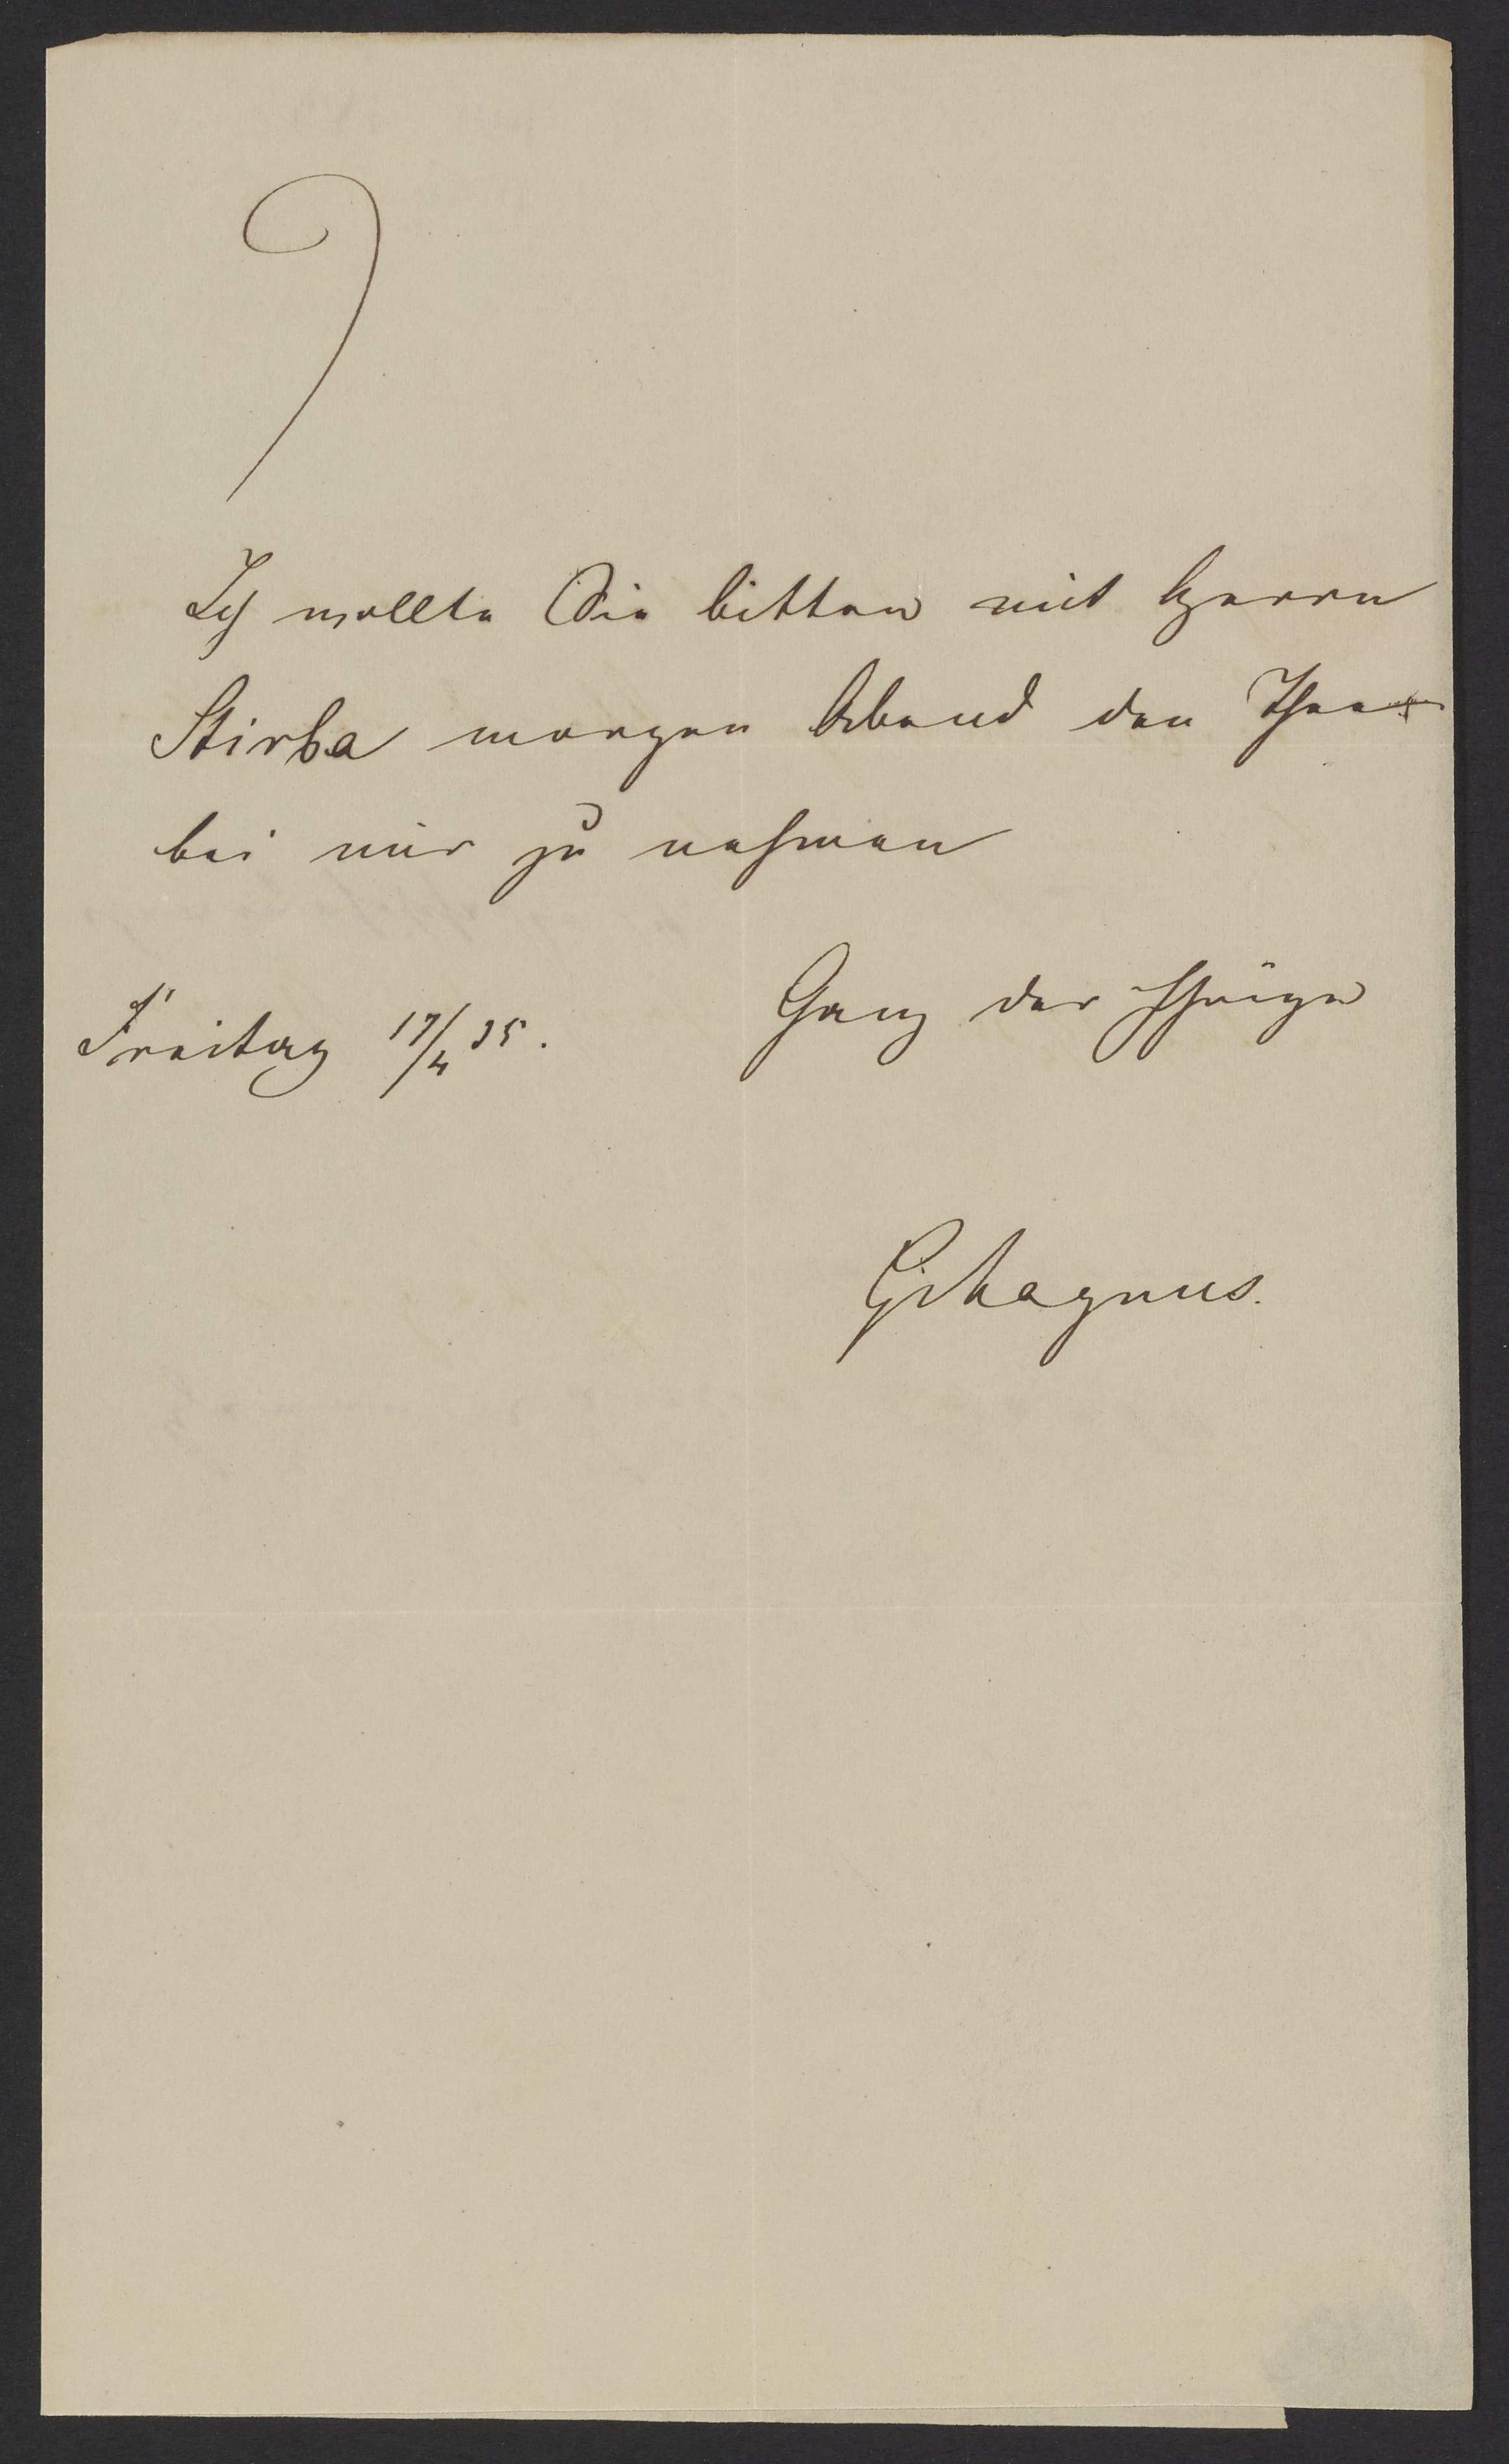 Ich wollte Sie bitten mit Herrn
Stirba morgen Abend den Thee
bei mir zu nehmen
Ganz der Ihrige
Freitag 17/4 35.
G Magnus.